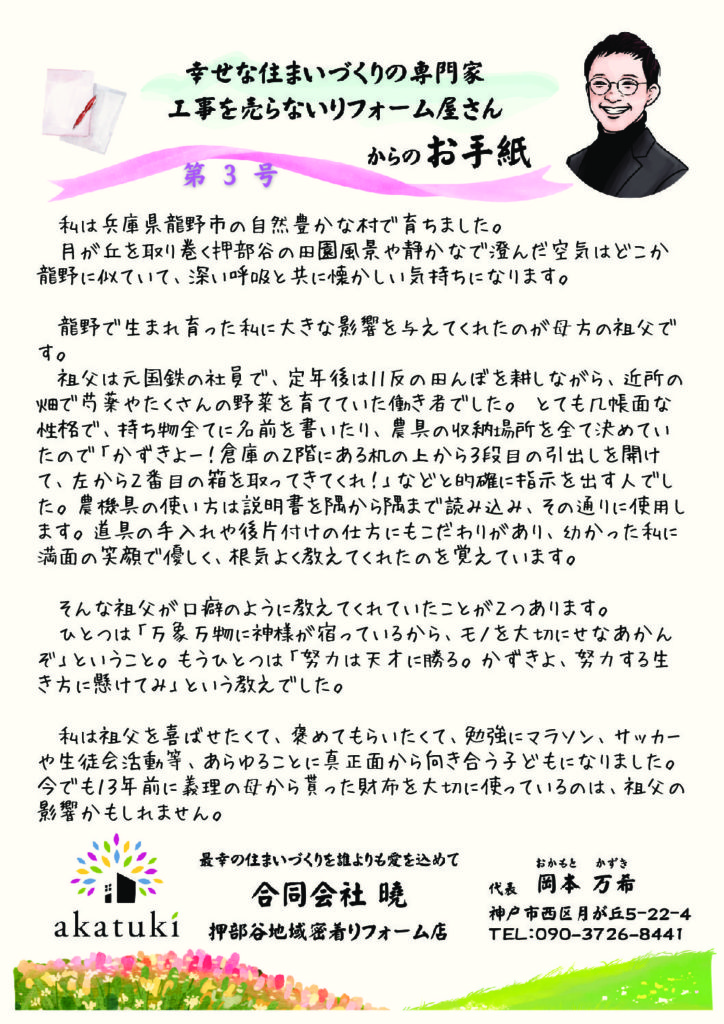 幸せな住まいづくりの専門家
工事を売らないリフォーム屋さん
からのお手紙
第 3 号
私は兵庫県龍野市の自然豊かな村で育ちました。
月が丘を取り巻く押部谷の田園風景や静かなで澄んだ空気はどこか
龍野に似ていて、深い呼吸と共に懐かしい気持ちになります。
龍野で生まれ育った私に大きな影響を与えてくれたのが母方の祖父で
す。
祖父は元国鉄の社員で、定年後は11反の田んぼを耕しながら、近所の
畑で芍薬やたくさんの野菜を育てていた働き者でした。 とても几帳面な
性格で、持ち物全てに名前を書いたり、農具の収納場所を全て決めてい
たので「かずきよー!倉庫の2階にある机の上から3段目の引出しを開け
て、左から2番目の箱を取ってきてくれ!」などと的確に指示を出す人でし
た。農機具の使い方は説明書を隅から隅まで読み込み、その通りに使用し
ます。道具の手入れや後片付けの仕方にもこだわりがあり、幼かった私に
満面の笑顔で優しく、根気よく教えてくれたのを覚えています。
そんな祖父が口癖のように教えてくれていたことが2つあります。
ひとつは「万象万物に神様が宿っているから、モノを大切にせなあかん
ぞ」ということ。もうひとつは「努力は天才に勝る。かずきよ、努力する生
き方に懸けてみ」という教えでした。
私は祖父を喜ばせたくて、褒めてもらいたくて、勉強にマラソン、サッカー
や生徒会活動等、あらゆることに真正面から向き合う子どもになりました。
今でも13年前に義理の母から貰った財布を大切に使っているのは、祖父の
影響かもしれません。
akatuki
最幸の住まいづくりを誰よりも愛を込めて
合同会社 曉
押部谷地域密着リフォーム店
おかもと かずき
代表 岡本 万希
神戸市西区月が丘5-22-4
TEL:090-3726-8441